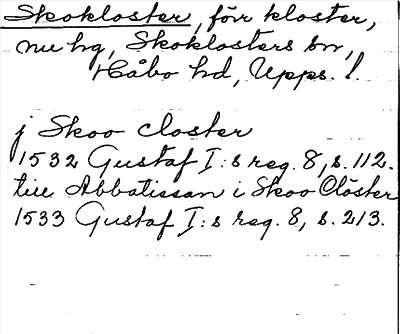 Skokloster, förr kloster,
nu hg, Skoklosters sn,
Håbo hd, Upps. l.
j Skoo closter
1532 Gustaf I:s reg. 8, s. 112.
till Abbatissan i Skoo Clöster
1533 Gustaf I:s reg. 8, s. 213.